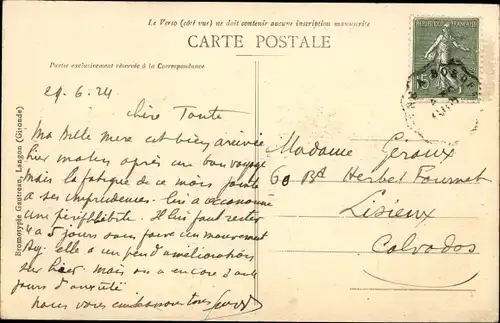 Le Verso (côté vue) ne doit contenir aucune inscription manuscrite
CARTE POSTALE
Partie exclusivement réservée à la Correspondance
REPUBLIQUE FRANÇAISE
15
Bromotypie Gautreau, Langon (Gironde)
29.6.24
chère Tante
Ma Belle Mere est bien arrivée
hier matin après un bon voyage
Mais la fatigue de ce mois jointe
a ses imprudences lui a occasionné
une périphlébite. Il lui faut rester
4 a 5 jours sans faire un mouvement
Auj. elle a un peu d'amélioration
sur hier. Mais on a encore
jours d'anxiété
nous vous embrassons tous
Madame Géroux
60 Bd Herbet Fournet
Lisieux
Calvados